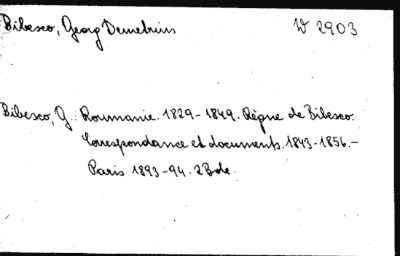 Bibesco, Georg Demetrius W 2903
Bibesco, G. Roumanie. 1829-1849. Règne de Bibesco.
Correspondance et documents. 1843-1856.-
Paris 1893-94. 2 Bde.